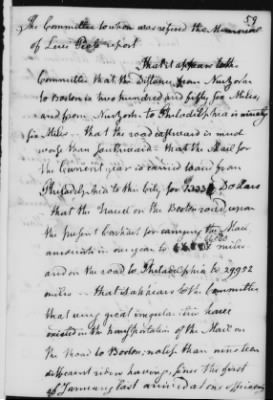 59
The Committee to whom was referred the Memorial
of Levi Pease report
That it appears to the
Committee that the Distance from New York
to Boston is two hundred and fifty six Miles,
and from New York to Philadelphia is ninety
six Miles -- that the road eastward is much
worse than southward -- that the Mail for
the Current year is carried to and from
Philadelphia to this City for Dollars
that the Travel on the Boston road, upon
the present Contract for carrying the Mail
amounts in one year to miles
and on the road to Philadelphia to 29952
miles -- that it appears to the Committee
that very great irregularities have
existed in the transportation of the Mail on
the Road to Boston; no less than nineteen
different riders having, since the first
of January last arrived at one office in